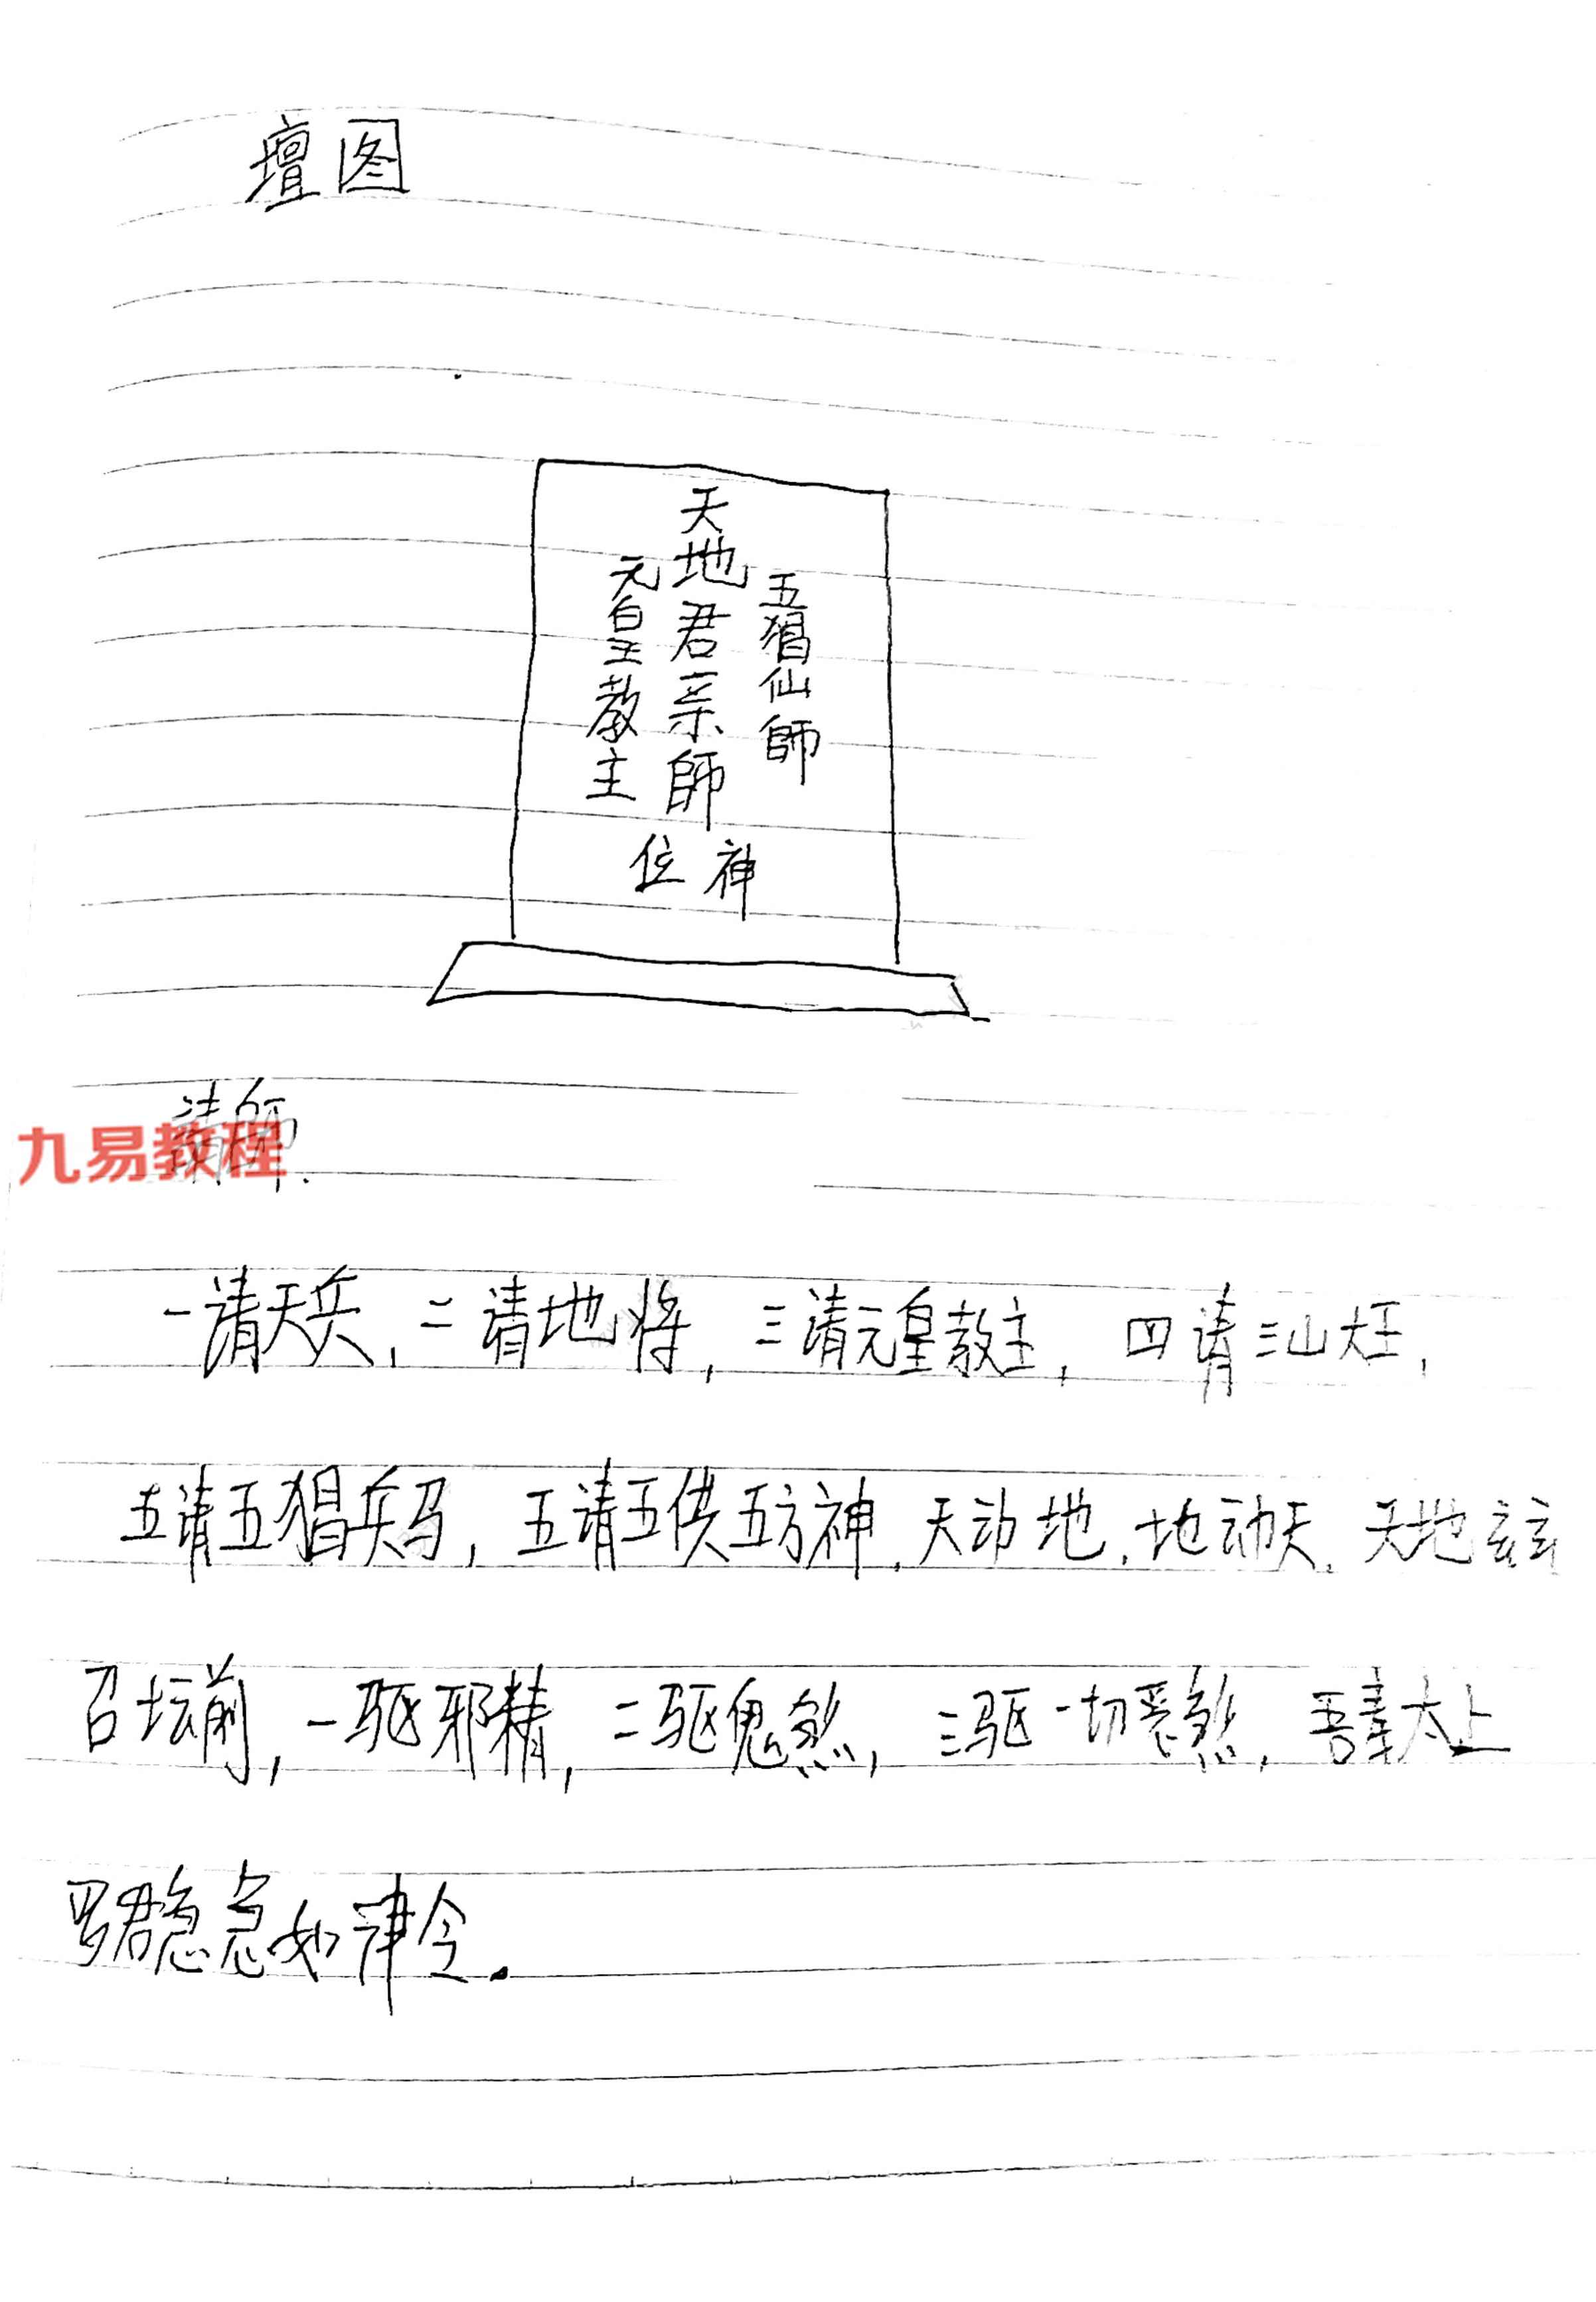 壇图
五猖仙師
天地君亲師
元皇教主
神位
請師.
九易教程
一请天兵,二请地将,三请元皇教主,四请三山大王,
五请五猖兵马,五请五供五方神,天动地,地动天,天地玄玄
召坛前,一驱邪精,二驱鬼煞,三驱一切恶煞,吾奉太上
罗君急急如律令.